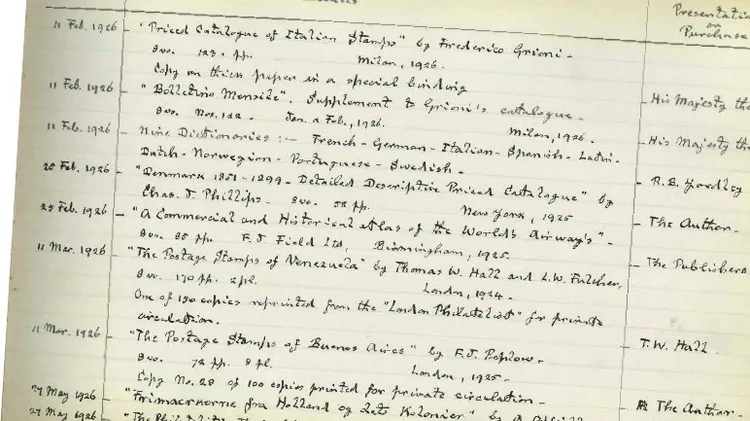 Presentation
or
Purchase
11 Feb. 1926 - "Priced Catalogue of Italian Stamps" by Frederico Grioni -
8vo. 123. pp. Milan, 1926.
Copy on thick paper in a special binding - His Majesty the
11 Feb. 1926 - "Bolletino Mensile". Supplement to Grioni's catalogue -
8vo. Nos. 1 & 2. Jan. & Feb., 1926. Milan, 1926. - His Majesty the
11 Feb. 1926 - Nine Dictionaries :- French - German - Italian - Spanish - Latin -
Dutch - Norwegian - Portuguese - Swedish - - R.B. Yardley
25 Feb. 1926 - "Denmark 1851-1899 - Detailed Descriptive Priced Catalogue" by
Chas. J. Phillips - 8vo. 58 pp. New York, 1925 - The Author -
25 Feb. 1926 - "A Commercial and Historical Atlas of the World's Airways" -
8vo. 85 pp. F.J. Field Ltd, Birmingham, 1925. - The Publishers
11 Mar. 1926 - "The Postage Stamps of Venezuela" by Thomas W. Hall and L.W. Fulcher,
8vo. 170 pp. 2 pl. London, 1924 -
One of 150 copies reprinted from the "London Philatelist" for private
circulation. - T.W. Hall
11 Mar. 1926 - "The Postage Stamps of Buenos Aires" by F.J. Peplow -
8vo. 72 pp. 8 pl. London, 1925 -
Copy No. 28 of 100 copies printed for private circulation - - The Author -
27 May 1926 - "Frimaerkerne fra Holland og dets Kolonier" by
27 May 1926 - "The